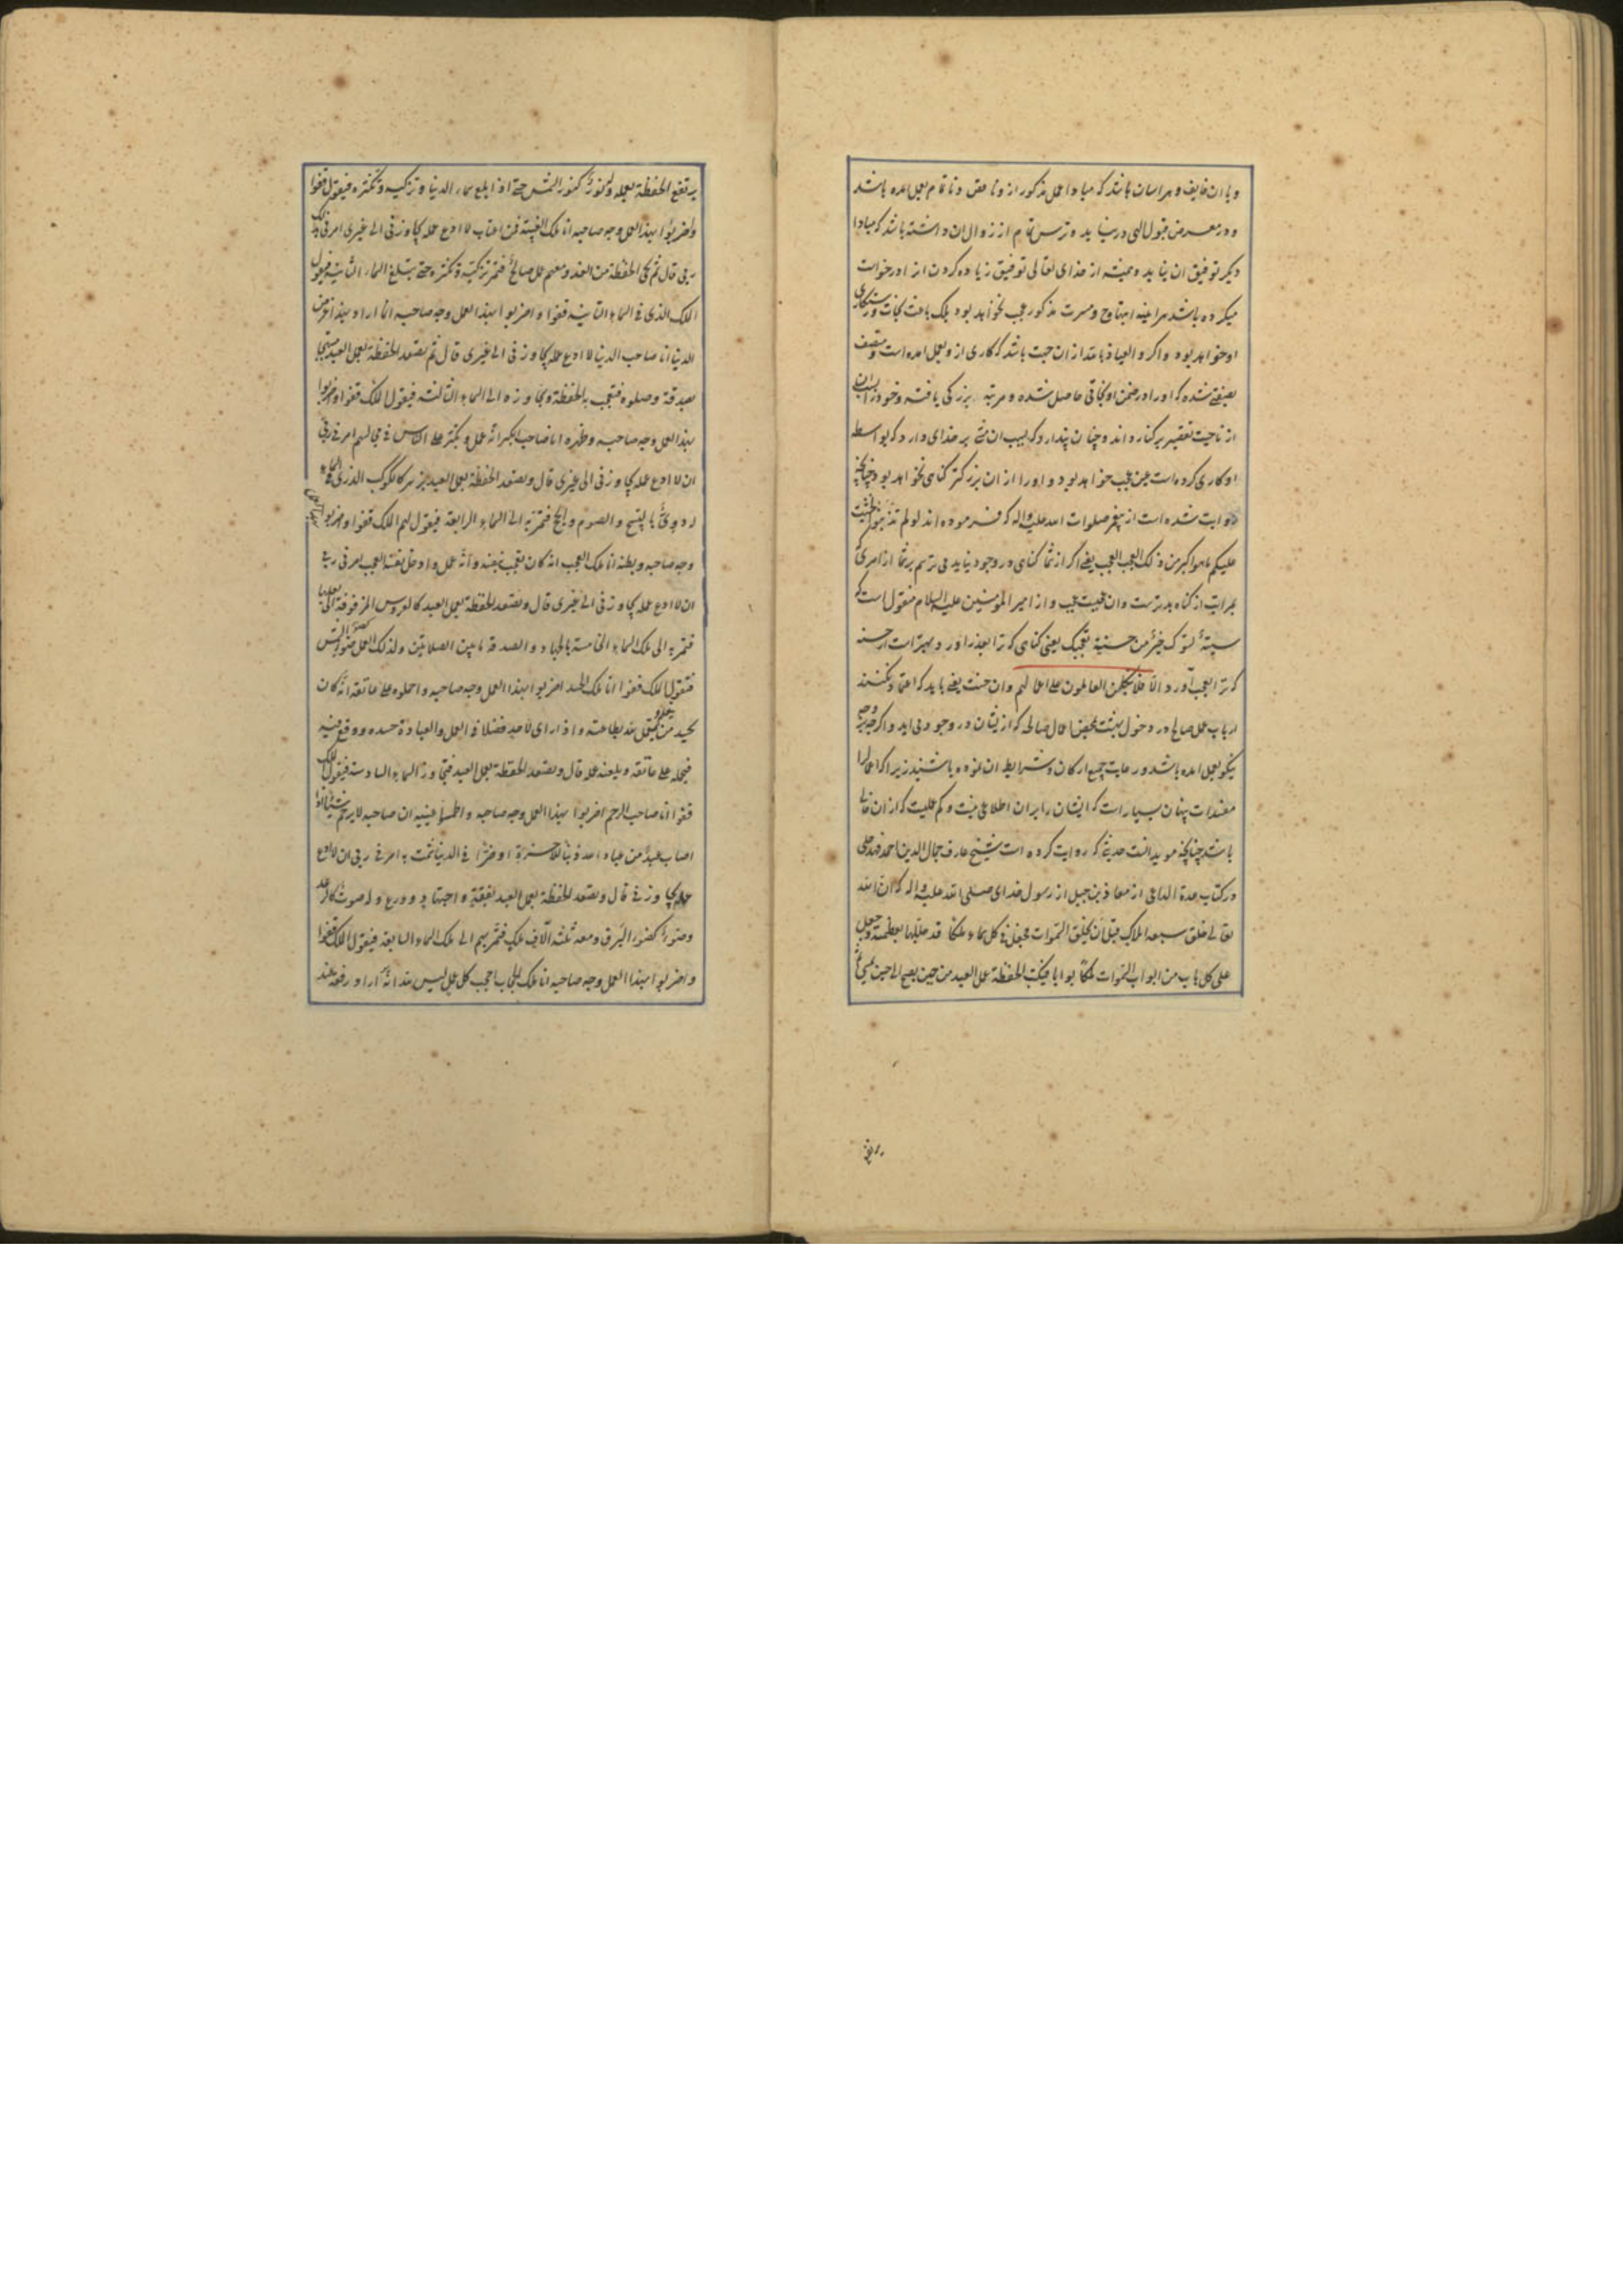 و با ان خایف و هراسان باشد که مبادا عمل مذکور ازو ناقص و ناتمام بعمل امده باشد
و در معرض قبول الهی در نیاید و ترس تمام از زوال ان داشته باشد که مبادا
دیگر توفیق ان نیابد و همیشه از خدای تعالی توفیق زیاده کردن از او درخواست
میکرده باشد هراینه ابتهاج و مسرت مذکور عجب نخواهد بود بلک باعث نجات و رستکاری
او خواهد بود و اکر و العیاذ بالله از ان جهت باشد که کاری ازو بعمل امده است و متصف
بصفتی شده که او را در ضمن او نجاتی حاصل شده و مرتبه بزرکی یافته و خود را بسبب ان
از ناحیت تقصیر بر کنار داند و چنان پندارد که بسبب ان منتی بر خدای دارد که بواسطه
او کاری کرده است عین عجب خواهد بود و او را از ان بزرکتر کناهی نخواهد بود چنانچه
روایت شده است از پیغمبر صلوات الله علیه واله که فرموده اند لو لم تذنبوا لخشیت
علیکم ما هو اکبر من ذلک العجب العجب یعنی اکر از شما کناهی در وجود نیاید می ترسم بر شما از امری که
بمراتب از کناه بدترست وان عجبست عجب و از امیر المومنین علیه السلام منقول است که
سیئة تسوک خیر من حسنة تعجبک یعنی کناهی که ترا بعذر اورد بهتر است از حسنه
که ترا بعجب آورد و الا فلا یتکلن العاملون علی اعمالهم وان حسنت یعنی باید که اعتماد نکنند
ارباب عمل صالح در دخول بهشت بمحض اعمال صالحی که از ایشان در وجود می اید و اکرچه بر وجه
نیکو بعمل امده باشد و رعایت جمیع ارکان و شرایط ان نموده باشند زیرا که اعمال را
مفسدات پنهان بسیار است که ایشان را بر ان اطلاعی نیست و کم عملیست که از ان خالی
باشد چنانچه موید انست حدیثی که روایت کرده است شیخ عارف جمال الدین احمد فهد حلی
در کتاب عدة الداعی از معاذ بن جبل از رسول خدای صلی الله علیه واله که ان الله
تعالی خلق سبعة املاک قبل ان یخلق السموات فجعل فی کل سماء ملکا قد جللها بعظمته و جعل
علی کل باب من ابواب السموات ملکا بوابا فیکتب الحفظة عمل العبد من حین یصبح الی حین یمسی ثم
یرتفع الحفظة بعمله وله نور کنور الشمس حتی اذا بلغ سماء الدنیا و تزکیه و تکثره فیقول قفوا
واضربوا بهذا العمل وجه صاحبه انا ملک الغیبة فمن اغتاب لا ادع عمله یجاوزنی الی غیری امرنی بذلک
ربی قال ثم یجئ الحفظة من الغد و معهم عمل صالح فتمر به تزکیه و تکثره حتی تبلغ السماء الثانیة فیقول
الملک الذی فی السماء الثانیة قفوا و اضربوا بهذا العمل وجه صاحبه انما اراد بهذا عرض
الدنیا انا صاحب الدنیا لا ادع عمله یجاوزنی الی غیری قال ثم تصعد الحفظة بعمل العبد مبتهجا
بصدقة و صلوة فتعجب به الحفظة و تجاوزه الی السماء الثالثة فیقول الملک قفوا واضربوا
بهذا العمل وجه صاحبه و ظهره انا صاحب الکبر انه عمل و تکبر علی الناس فی مجالسهم امرنی ربی
ان لا ادع عمله یجاوزنی الی غیری قال و تصعد الحفظة بعمل العبد یزهر کالکوکب الدری فی السماء
له دوی بالتسبیح و الصوم و الحج فتمر به الی السماء الرابعة فیقول لهم الملک قفوا و اضربوا بهذا العمل
وجه صاحبه و بطنه انا ملک العجب انه کان یعجب بنفسه و انه عمل و ادخل نفسه العجب امرنی ربی
ان لا ادع عمله یجاوزنی الی غیری قال و تصعد الحفظة بعمل العبد کالعروس المزفوفة الی بعلها
فتمر به الی ملک السماء الخامسة بالجهاد و الصدقة ما بین الصلاتین و لذلک العمل ضوء کضوء الشمس
فیقول الملک قفوا انا ملک الحسد اضربوا بهذا العمل وجه صاحبه و احملوه علی عاتقه انه کان
یحسد من یتعلم و یعمل لله بطاعته و اذا رای لاحد فضلا فی العمل والعبادة حسده و وقع فیه
فیحمله علی عاتقه و یلعنه عمله قال و تصعد الحفظة بعمل العبد فتجاوز السماء السادسة فیقول الملک
قفوا انا صاحب الرحم اضربوا بهذا العمل وجه صاحبه و اطمسوا عینیه ان صاحبه لا یرحم شیئا اذا
اصاب عبد من عباد الله ذنبا للآخرة او ضرا فی الدنیا شمت به امرنی ربی ان لا ادع
عمله یجاوزنی قال و تصعد الحفظة بعمل العبد بفقه و اجتهاد و ورع و له صوت کالرعد
وضوء کضوء البرق و معه ثلثة آلاف ملک فتمر بهم الی ملک السماء السابعة فیقول الملک قفوا
و اضربوا بهذا العمل وجه صاحبه انا ملک الحجاب احجب کل عمل لیس لله انه اراد رفعة عند